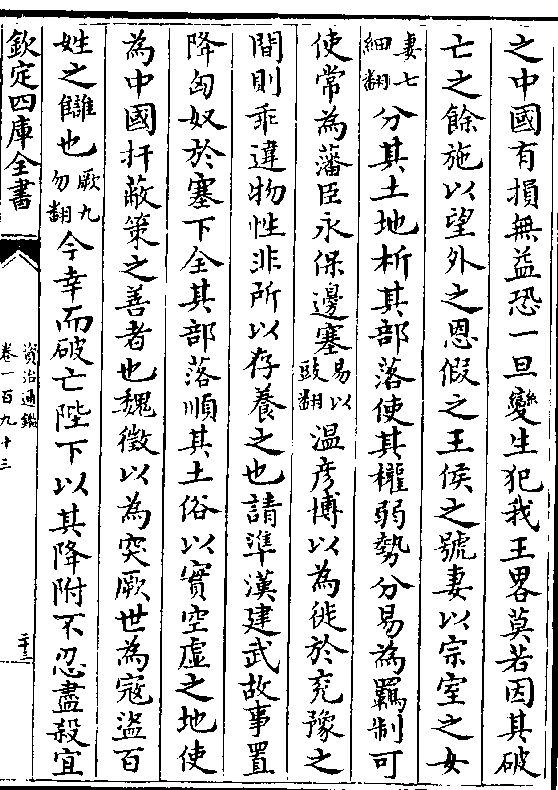 之中國有損無益恐一旦變生犯我王畧莫若因其破
亡之餘施以望外之恩假之王侯之號妻以宗室之女
妻七細翻分其土地析其部落使其權弱勢分易為羈制可
使常為藩臣永保邊塞易以豉翻温彦博以為徙於兖豫之
間則乖違物性非所以存養之也請準漢建武故事置
降匈奴於塞下全其部落順其土俗以實空虛之地使
為中國扞蔽策之善者也魏徵以為突厥世為寇盜百
姓之讎也厥九勿翻今幸而破亡陛下以其降附不忍盡殺宜
欽定四庫全書
資治通鑑
卷一百九十三
二十三